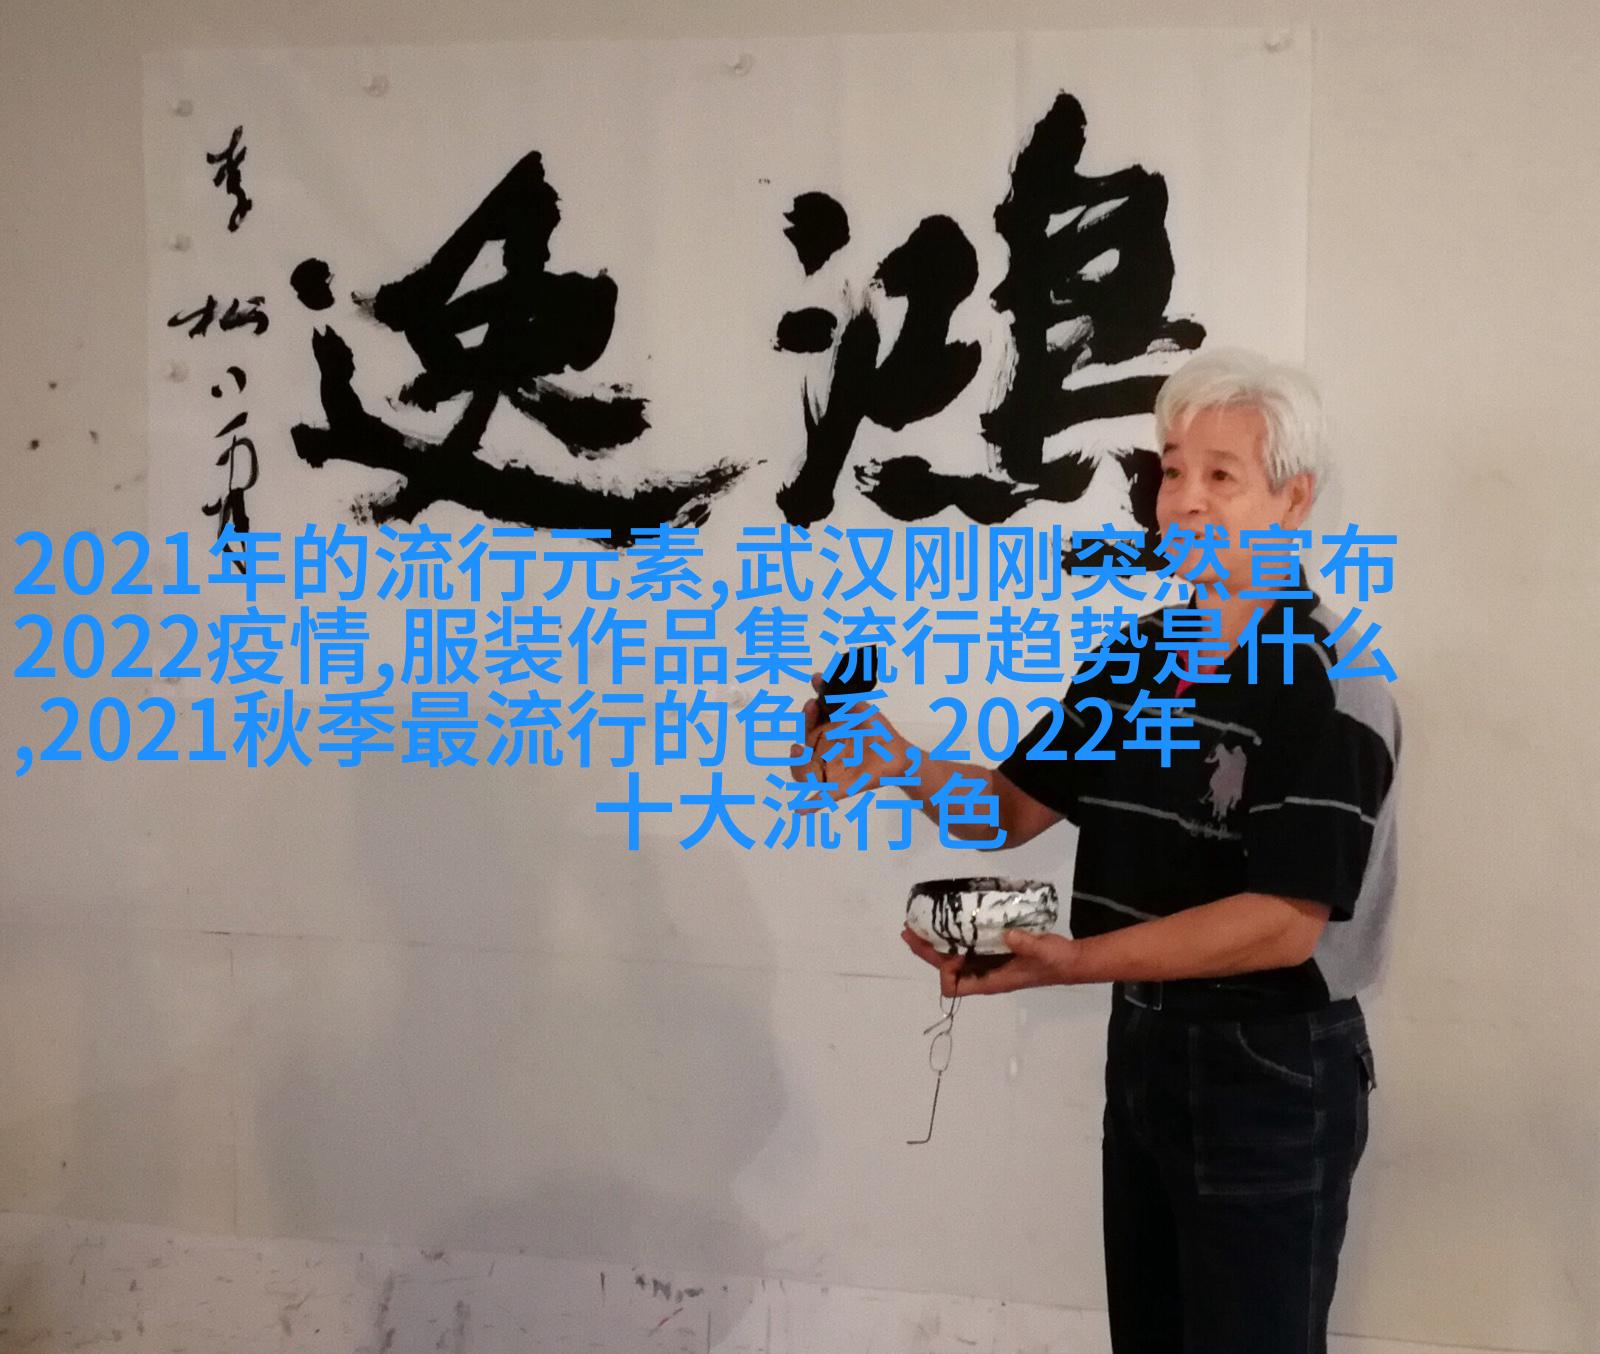 鴻逸
李松
2021年的流行元素,武汉刚刚突然宣布
2022疫情,服装作品集流行趋势是什么
,2021秋季最流行的色系,2022年
十大流行色